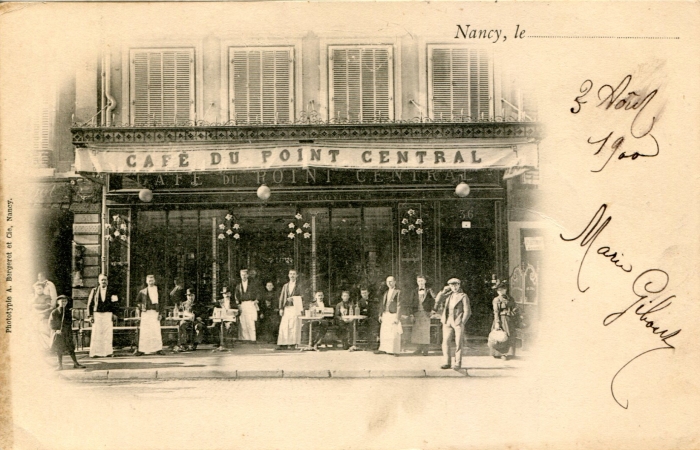 Nancy, le
3 Août
1900
Marie
CAFÉ DU POINT CENTRAL
CAFÉ DU POINT CENTRAL
36
Phototypie A. Bergeret et Cie, Nancy.